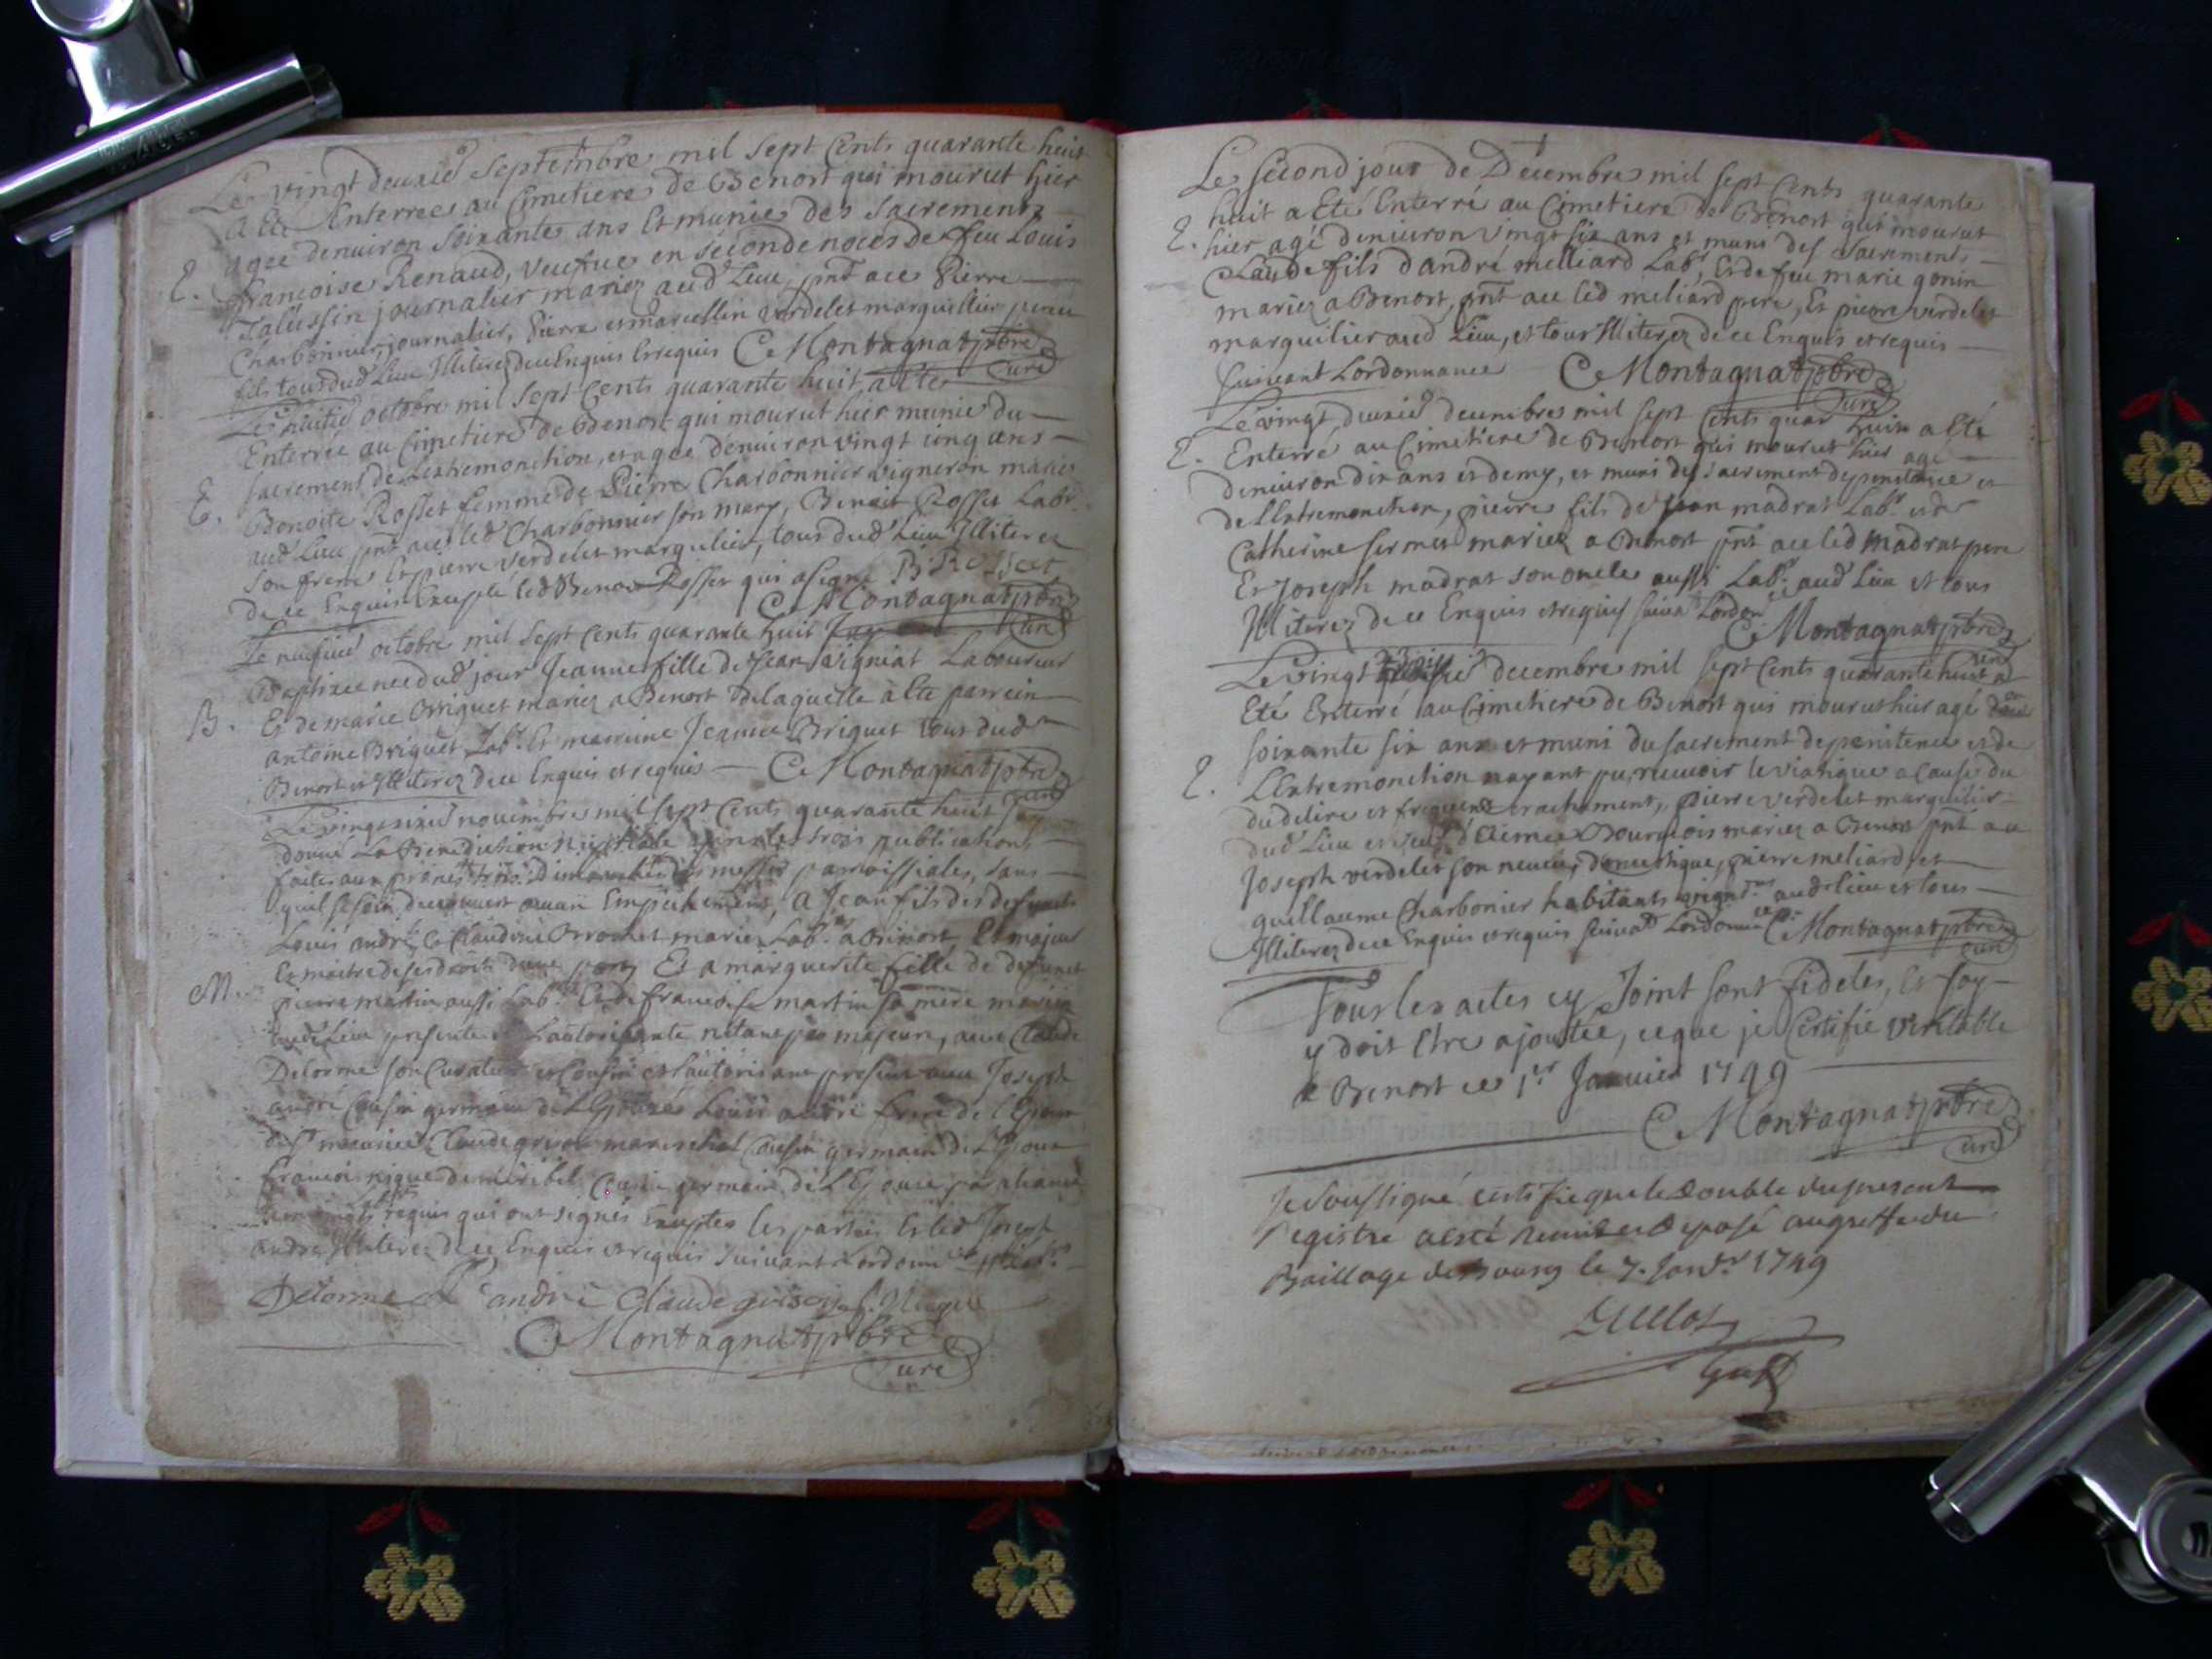 Le vingt deuxie septembre mil sept cents quarante huit
a été Enterrée au Cimetiere de Benost qui mourut hier
agée denuiron soixante ans Et munie des sacrements
E. françoise Renaud, veufue en seconde noces de feu Louis
journalier mariez aud Lieu, pnt ace Pierre
Charbonnier journalier, Pierre et marcellin verdelet marguillier pere
fils tous dud Lieu Illiterez de ce Enquis Et requis C Montagnat ptbre
Curé
Le huitie octobre mil sept cents quarante huit a été
Enterrée au Cimetiere de Benost qui mourut hier munie du
sacrement de Lextremonction, et agée denuiron vingt cinq ans
E. Benoite Rosset femme de Pierre Charbonnier vigneron mariez
aud Lieu pnt ace led Charbonnier son mary, Benoit Rosset Labr
son frere Et pierre verdelet margulier, tous dud Lieu Illiterez
de ce Enquis Excepté led Benoit Rosset qui a signé B Rosset
C Montagnat ptbre
Curé
Le neufuie octobre mil sept cents quarante huit Jay
Baptizée née dud jour Jeanne fille de Jean vigniat Laboureur
B. Et de marie Briquet mariez a Benost de laquelle a Eté parrein
antoine Briquet Labr Et marreine Jeanne Briquet tous dud
Benost et Illiterez de ce Enquis et requis C Montagnat ptbre
Curé
Le vingt nouembre mil sept cents quarante huit Jay
donné La Benediction Nuptiale apres les trois publications
faites aux prones trois dimanches messes parroissiales, sans
quil se soit decouuert aucun Empechement, a Jean fils des defunts
Louis andré, & Claudine mariez Labr a Benost, Et majeur
M. Et maitre de ses droits dune part, Et a marguerite fille de defunct
pierre martin aussi Labr Et de francoise martin sa mere mariez
aud Lieu presente et Lautorisante netant pas majeure, auec Claude
Delorme son Curateur et Cousin et Lautorisant present auec Joseph
andré Cousin germain de LEpoux Louis andré frere de lEpoux
de St maurice, Claude marechal Cousin germain de LEpoux
francois de miribel Cousin germain de LEpouse par aliance
requis qui ont signés Exceptez les parties Et led Joseph
andré Illiterez de ce Enquis et requis suiuant Lordonnce
Delorme andré Claude
C Montagnat ptbre
Curé
Le second jour de Decembre mil sept Cents quarante
huit a Eté Enterré au Cimetiere de Benost qui mourut
E. hier agé denuiron vingt six ans et muni des Sacrements
Claude fils dandré melliard Labr, Et de feu marie gonin
mariez a Benost, pnt ace led meliard pere, Et pierre verdelet
marguilier aud Lieu, et tous Illiterez de ce Enquis et requis
suiuant Lordonnance C Montagnat ptbre
Curé
Le vingt deuxie decembre mil sept Cents quar huit a Eté
E. Enterré au Cimetiere de Benost qui mourut hier agé
denuiron dix ans et demy, et muni des sacrement de penitence et
de LExtremonction, pierre fils de Jean madrat Labr et de
Catherine mariez a Benost pnt ace led madrat pere
Et Joseph madrat son oncle aussi Labr aud Lieu et tous
Illiterez de ce Enquis et requis suiua Lordonce
C Montagnat ptbre
Curé
Le vingt decembre mil sept Cents quarante huit a
Eté Enterré au Cimetiere de Benost qui mourut hier agé
soixante six ans et muni du sacrement de penitence et de
E. LExtremonction nayant pu receuoir le viatique a cause du
du delire et frequent crachement, pierre verdelet marguilier
dud Lieu et Bourgeois mariez a Benost pnt ace
Joseph verdelet son neueu, domestique, pierre meliard, et
guillaume Charbonier habitants aud Lieu et tous
Illiterez de ce Enquis et requis suiua Lordonnce C Montagnat ptbre
Curé
Tous les actes cy Joint sont fideles, Et foy
y doit Etre ajoutée, ce que je Certifie veritable
a Benost ce 1er Januier 1749
C Montagnat ptbre
Curé
Je soussigné certifie que le double du present
registre a esté remis et deposé au greffe du
Baillage de Bourg le 7. Janvr 1749